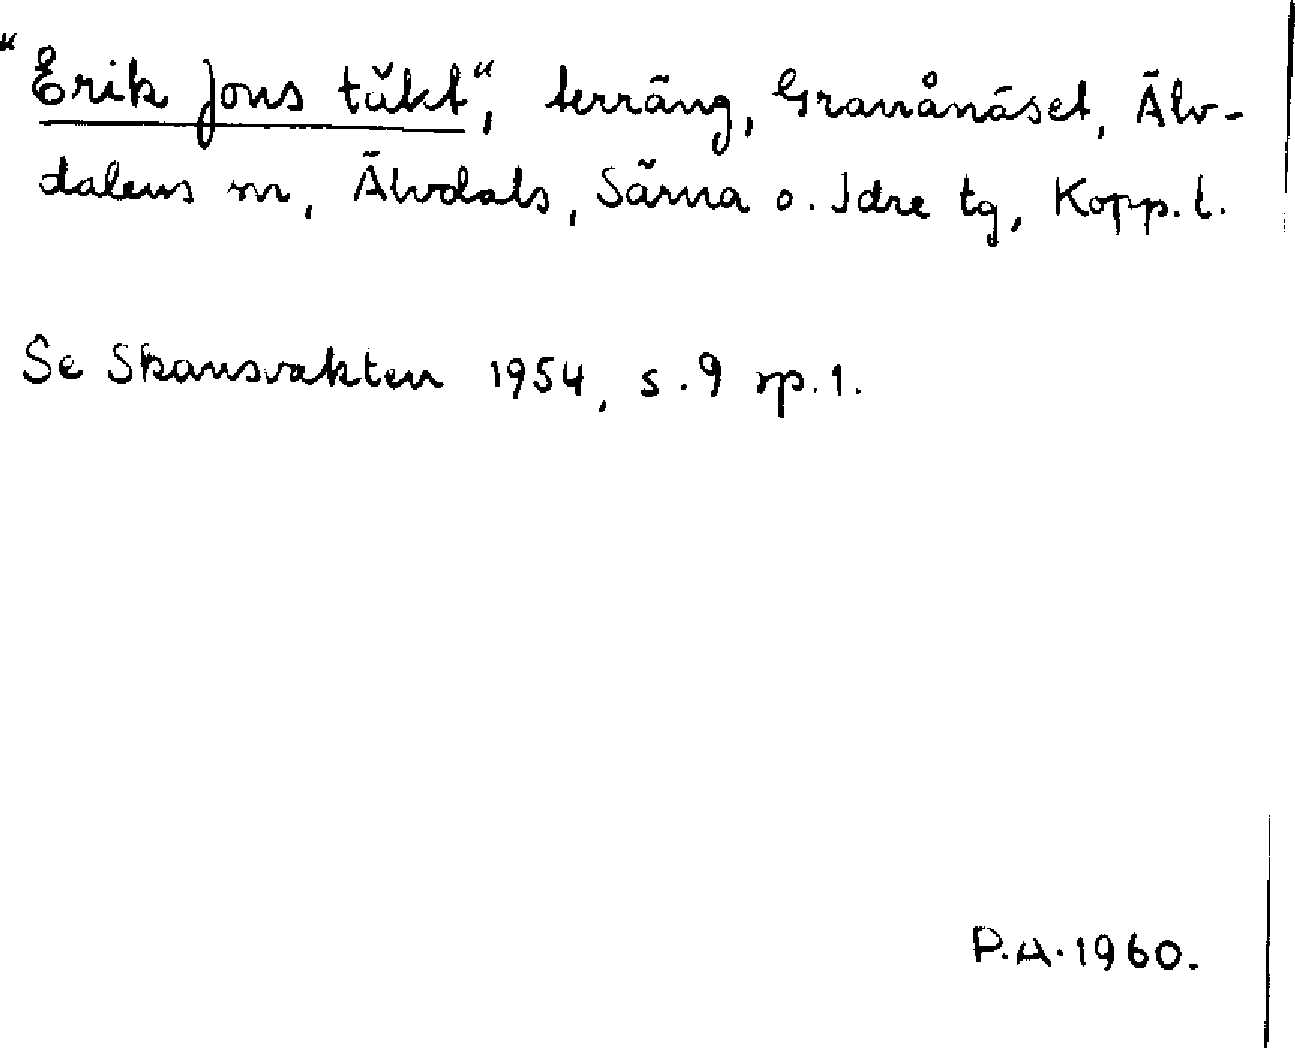 "Erik Jons täkt", terräng, Granånäset, Älv-
dalens sn, Älvdals, Särna o. Idre tg, Kopp. l.
Se Skansvakten 1954, s. 9 sp. 1.
P.A. 1960.